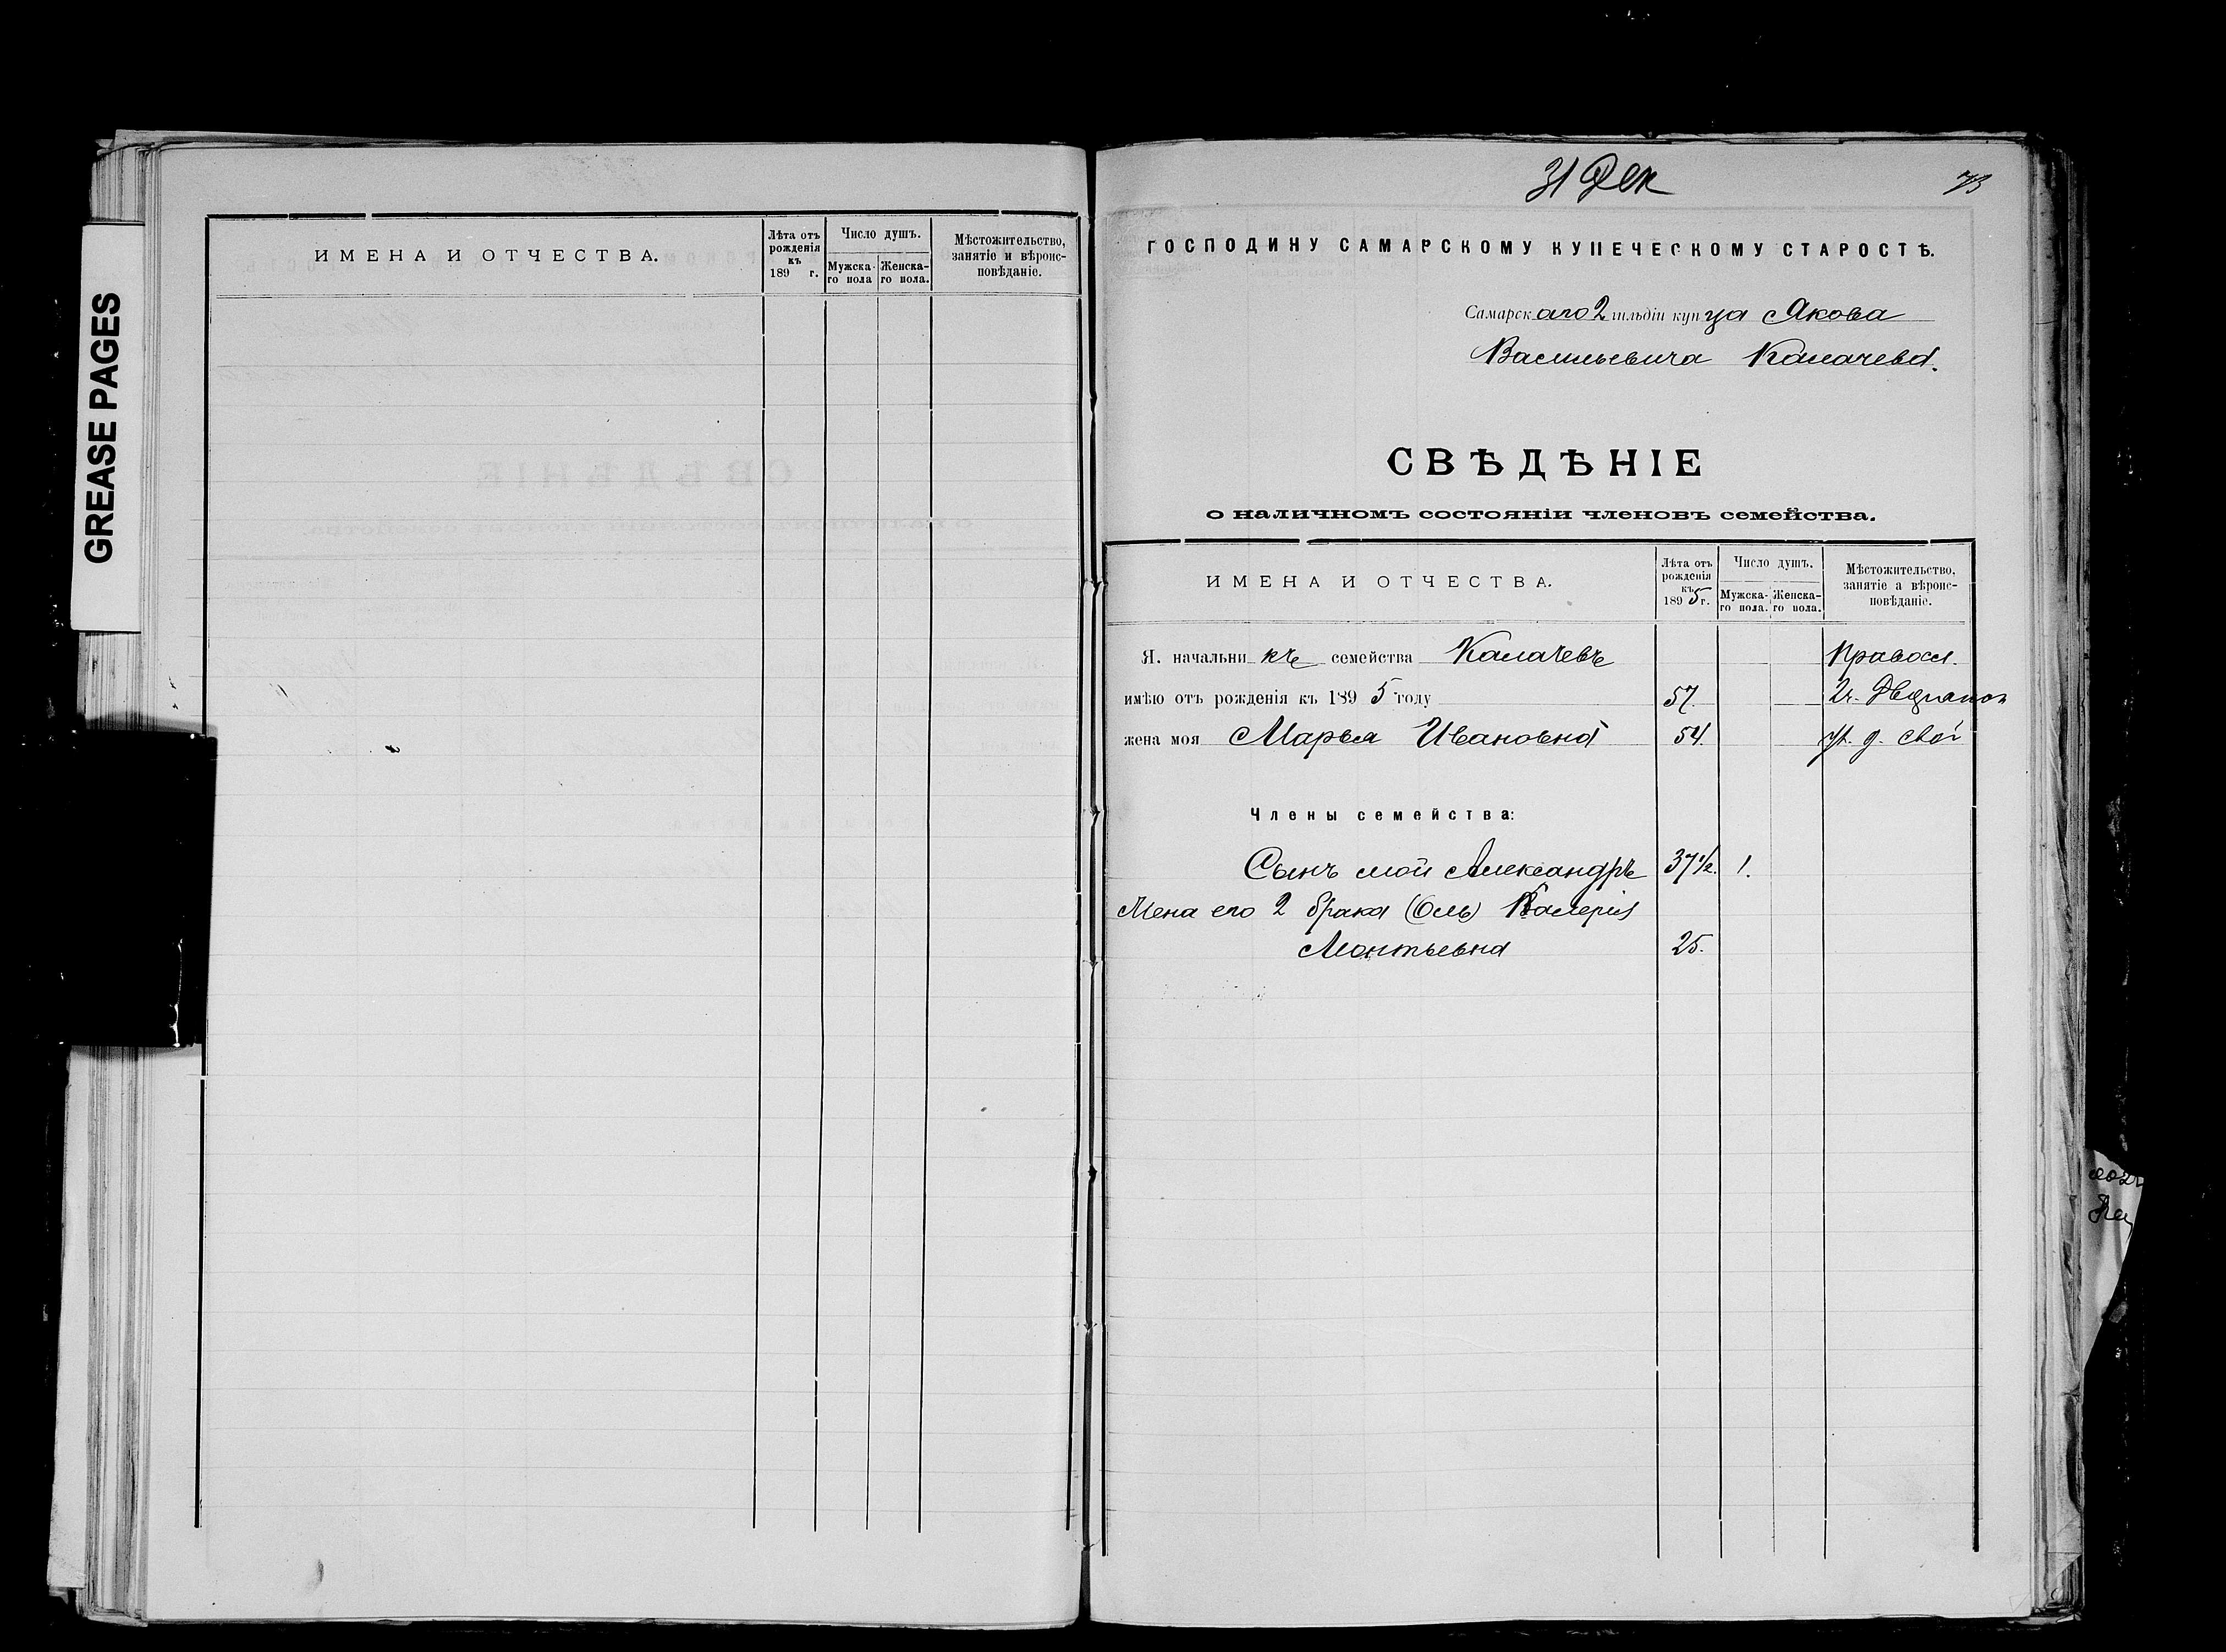 GREASE PAGES
ИМЕНА И ОТЧЕСТВА.
Лѣта отъ рожденія къ 189 г.
Число душъ.
Мужска-го пола
Женска-го пола.
Мѣстожительство, занятіе и вѣроис-повѣданіе.
31 Дек
73
ГОСПОДИНУ САМАРСКОМУ КУПЕЧЕСКОМУ СТАРОСТѢ.
Самарскаго 2 гильдіи купца Якова
Васильевича Калачева.
СВѢДѢНІЕ
о наличномъ состояніи членовъ семейства.
ИМЕНА И ОТЧЕСТВА.
Лѣта отъ рожденія къ 1895 г.
Число душъ.
Мужска-го пола.
Женска-го пола.
Мѣстожительство, занятіе а вѣроис-повѣданіе.
Я. начальникъ семейства Калачевъ Правосл.
имѣю отъ рожденія къ 1895 году 57. 2ч.
жена моя Марья Ивановна 54. д. свой
Члены семейства:
Сынъ мой Александръ 37 1/2. 1.
Жена его 2 брака Валерія
Леонтьевна 25.